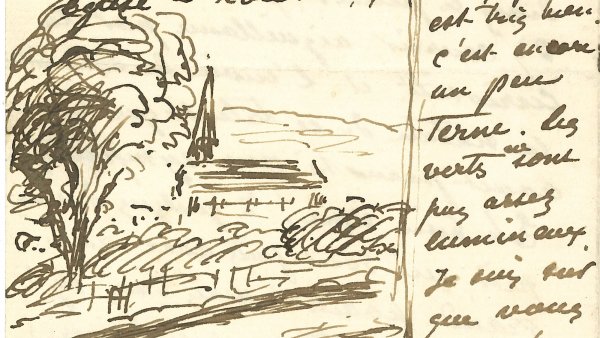 est très bien.
c'est encore
un peu
terne. les
verts ne sont
pas assez
lumineux.
Je suis sûr
que vous